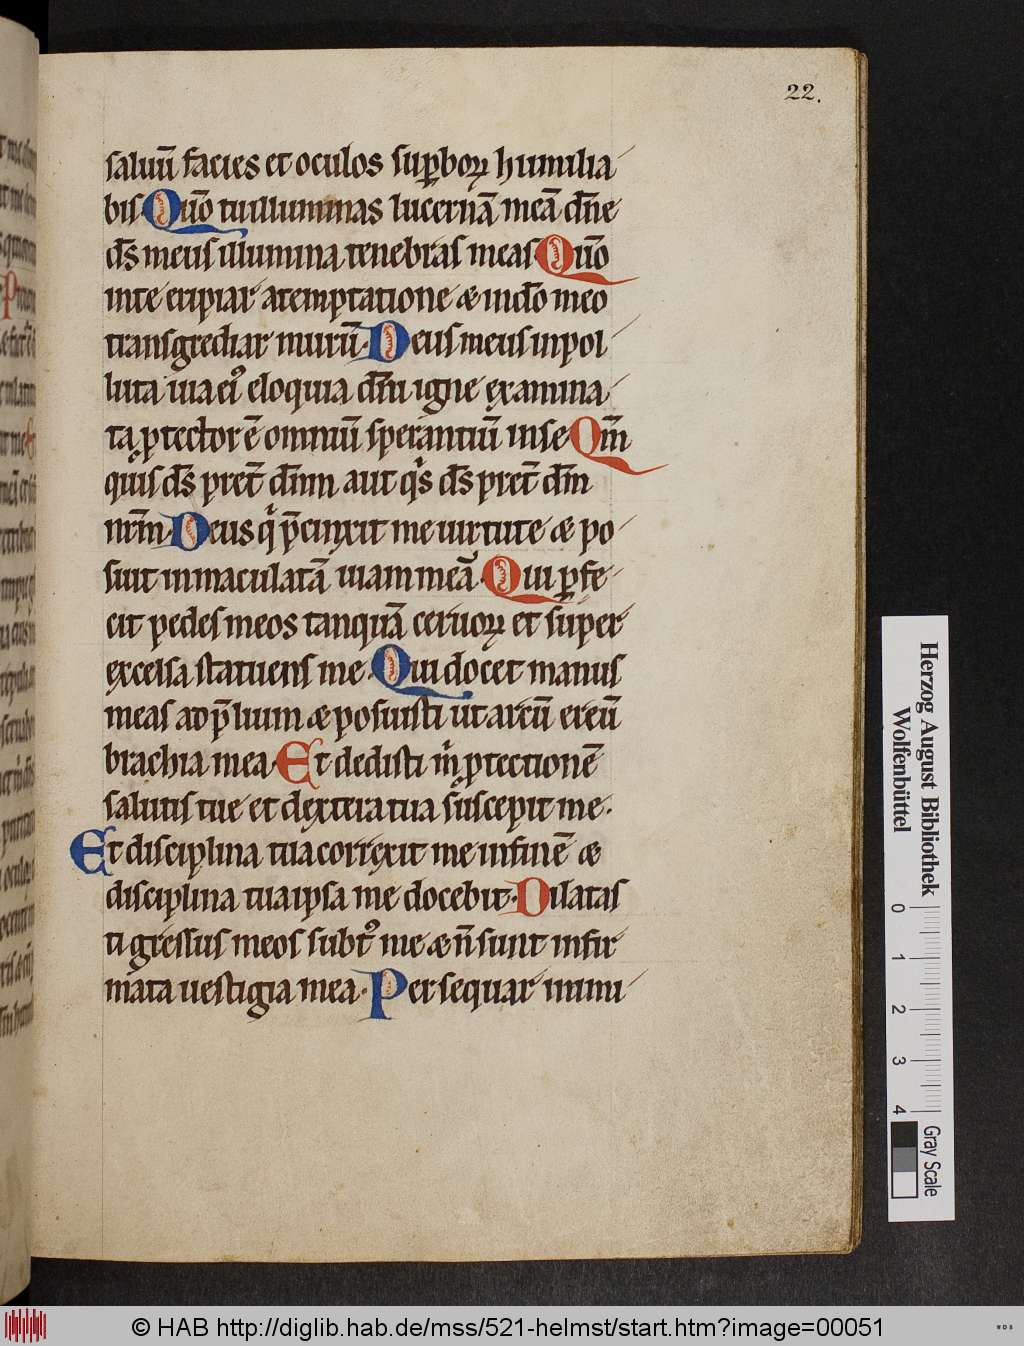 22.
saluū facies et oculos suꝑboꝝ humilia
bis Quō tu illuminas lucernā meā dn̄e
ds̄ meus illumina tenebras meas Quō
in te eripiar a temptatione & in dō meo
transgrediar murū. Deus meus inpol
luta uia eiꝰ eloquia dn̄i igne examina
ta ꝓtector ē omniū sperantiū in se Qm̄
quis ds̄ pret̄ dn̄m aut qis ds̄ pret̄ dm̄
nr̄m. Deus qi p̄cinxit me uirtute & po
suit inmaculatā uiam meā. Qui ꝑfe
cit pedes meos tanquā ceruoꝝ et super
excelsa statuens me. Qui docet manus
meas ad p̄lium & posuisti ut arcū ereū
brachia mea. Et dedisti m̄ ꝓtectionē
salutis tue et dextera tua suscepit me.
Et disciplina tua correxit me in finē &
disciplina tua ipsa me docebit. Dilatas
ti gressus meos subtꝰ me & n̄ sunt infir
mata uestigia mea. Persequar inimi
Herzog August Bibliothek
Wolfenbüttel
0 1 2 3 4
Gray Scale
© HAB http://diglib.hab.de/mss/521-helmst/start.htm?image=00051